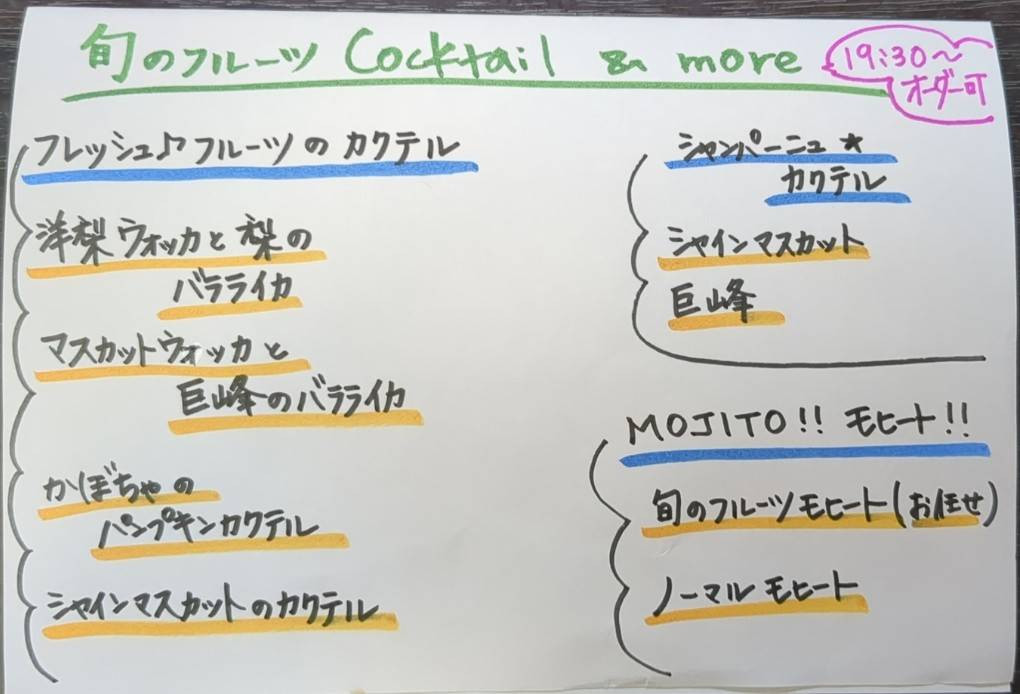 旬のフルーツ Cocktail & more
19:30〜
オーダー可
フレッシュ♪フルーツの カクテル
洋梨ウォッカと梨の
バラライカ
マスカットウォッカと
巨峰のバラライカ
かぼちゃの
パンプキンカクテル
シャインマスカットのカクテル
シャンパーニュ★
カクテル
シャインマスカット
巨峰
MOJITO!! モヒート!!
旬のフルーツモヒート(お任せ)
ノーマルモヒート